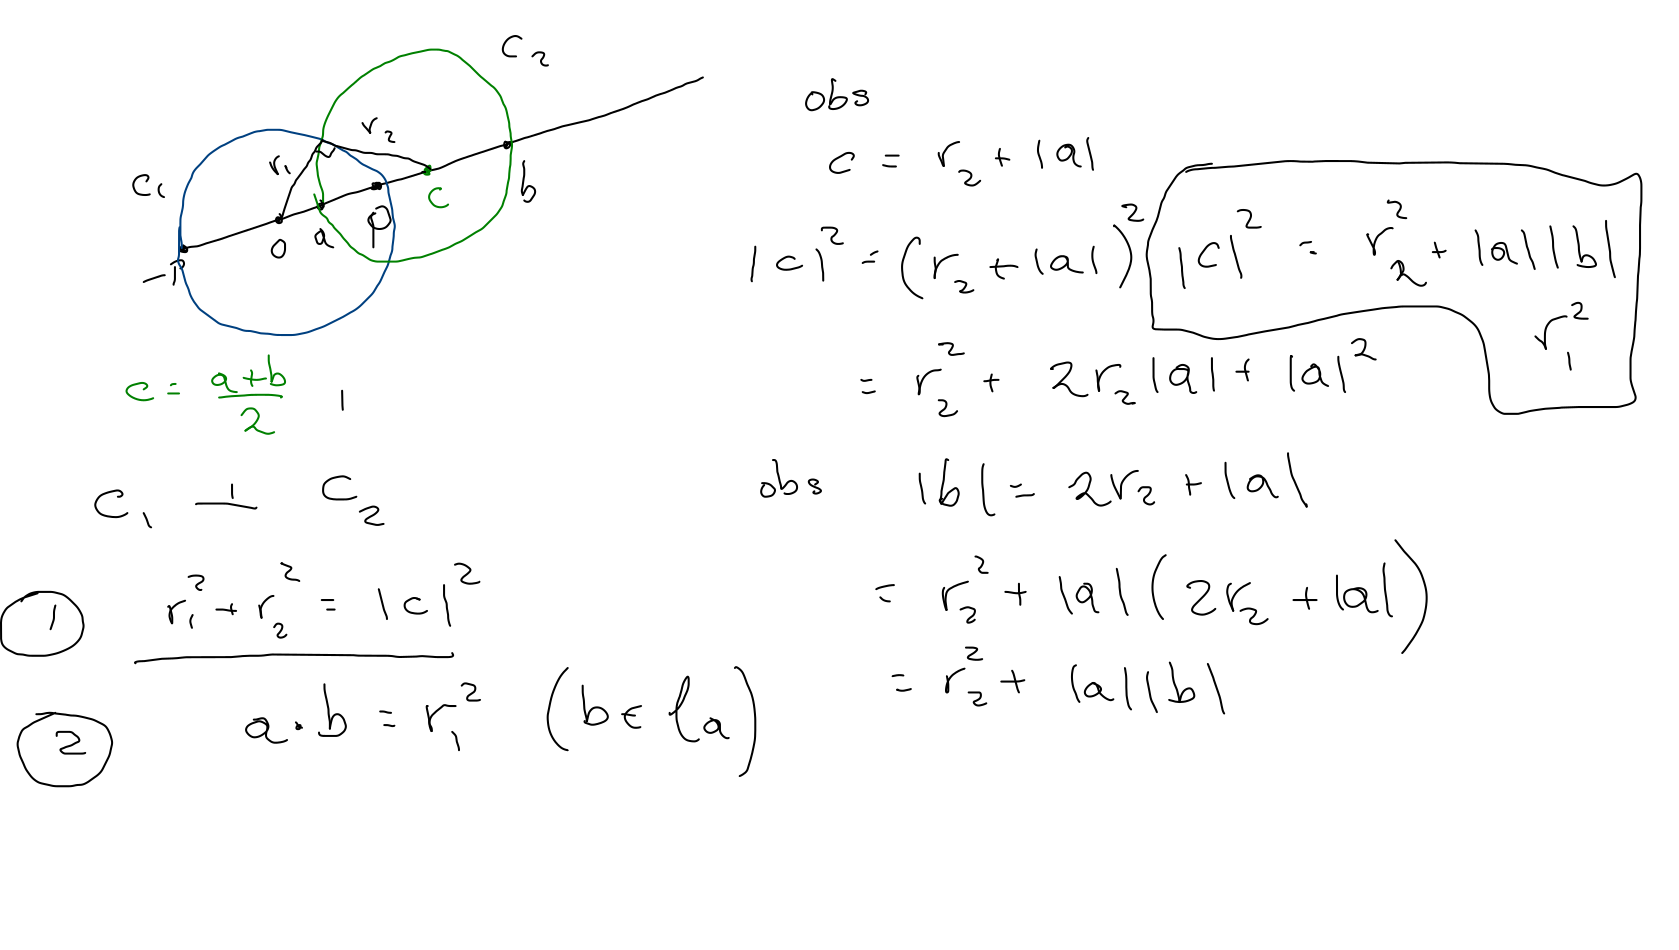 C₂
r₂
r₁
C₁
b
c
p
a
0
-p
c = (a+b)/2
C₁ ⊥ C₂
① r₁² + r₂² = |c|²
② a · b = r₁² (b ∈ ℓa)
obs
c = r₂ + |a|
|c|² = (r₂ + |a|)²
= r₂² + 2r₂|a| + |a|²
|c|² = r₂² + |a||b|
r₁²
obs |b| = 2r₂ + |a|
= r₂² + |a|(2r₂ + |a|)
= r₂² + |a||b|